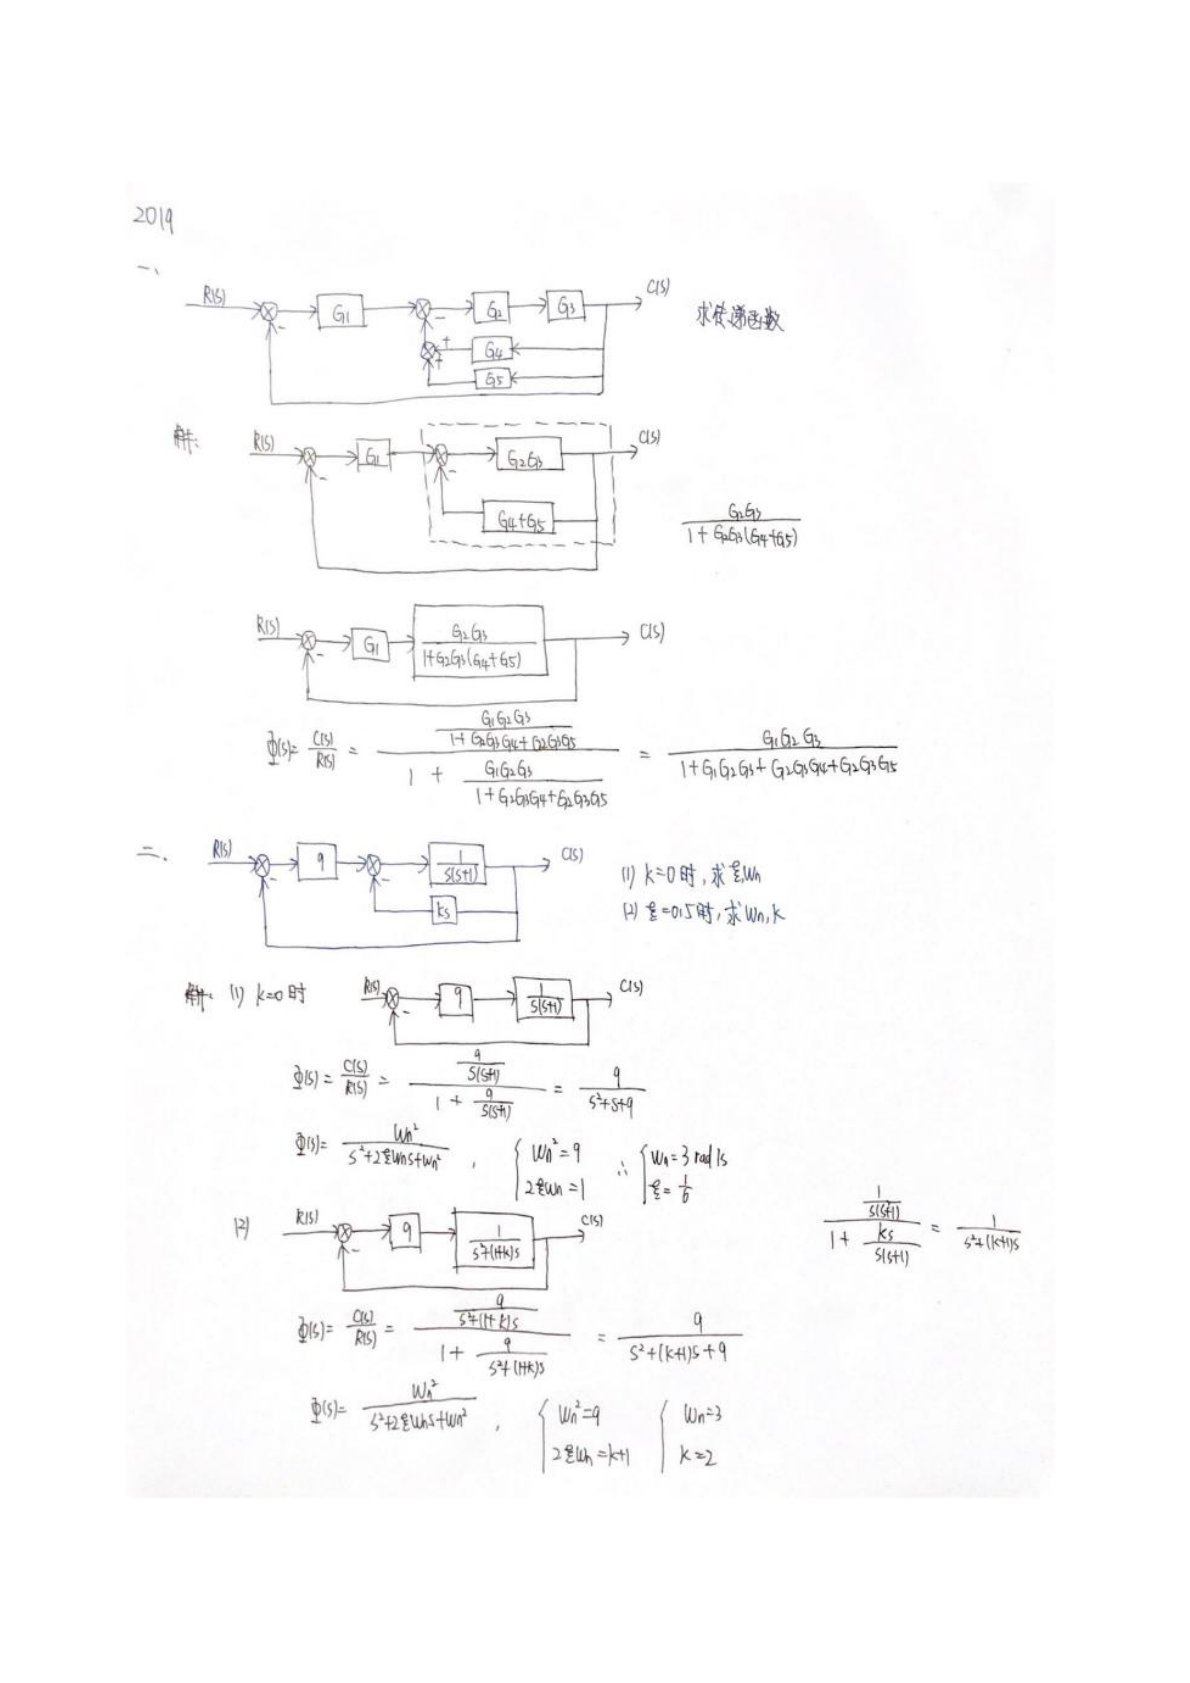 2019
一、
R(S) G1 G2 G3 C(S) 求传递函数
- -
+ G4
+ G5
解: R(S) G1 G2G3 C(S)
- -
G4+G5
G2G3 / 1+G2G3(G4+G5)
R(S) G1 G2G3 / 1+G2G3(G4+G5) C(S)
-
Φ(s)= C(s)/R(s) = (G1G2G3 / 1+G2G3G4+G2G3G5) / (1 + G1G2G3 / 1+G2G3G4+G2G3G5) = G1G2G3 / 1+G1G2G3+G2G3G4+G2G3G5
二、
R(s) 9 1/S(S+1) C(S)
- -
ks
(1) k=0时,求ξ,Wn
(2) ξ=0.5时,求Wn,k
解: (1) k=0时 R(s) 9 1/S(S+1) C(S)
-
Φ(s) = C(s)/R(s) = (9/S(S+1)) / (1 + 9/S(S+1)) = 9 / S²+S+9
Φ(s)= Wn² / S²+2ξWnS+Wn² , { Wn²=9 ∴ { Wn=3 rad/s
2ξWn=1 ξ=1/6
(2) R(s) 9 1/S²+(1+k)S C(s)
-
(1/S(S+1)) / (1 + ks/S(S+1)) = 1 / S²+(k+1)S
Φ(s)= C(s)/R(s) = (9/S²+(1+k)S) / (1+ 9/S²+(1+k)S) = 9 / S²+(k+1)S+9
Φ(s)= Wn² / S²+2ξWnS+Wn² , { Wn²=9 { Wn=3
2ξWn=k+1 k=2